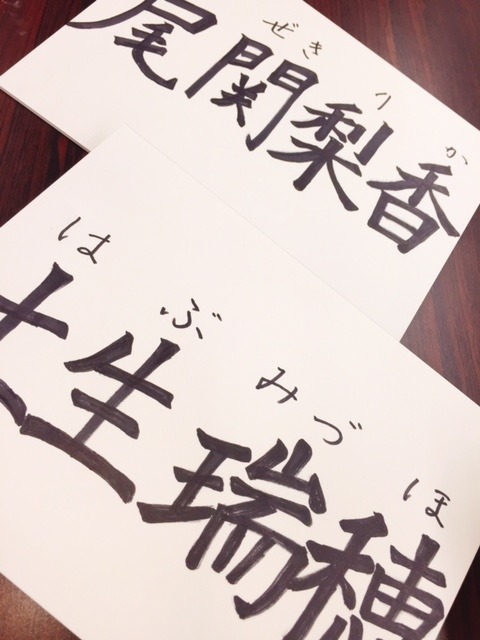 ぜき り か
尾関梨香
はぶ みづほ
土生瑞穂